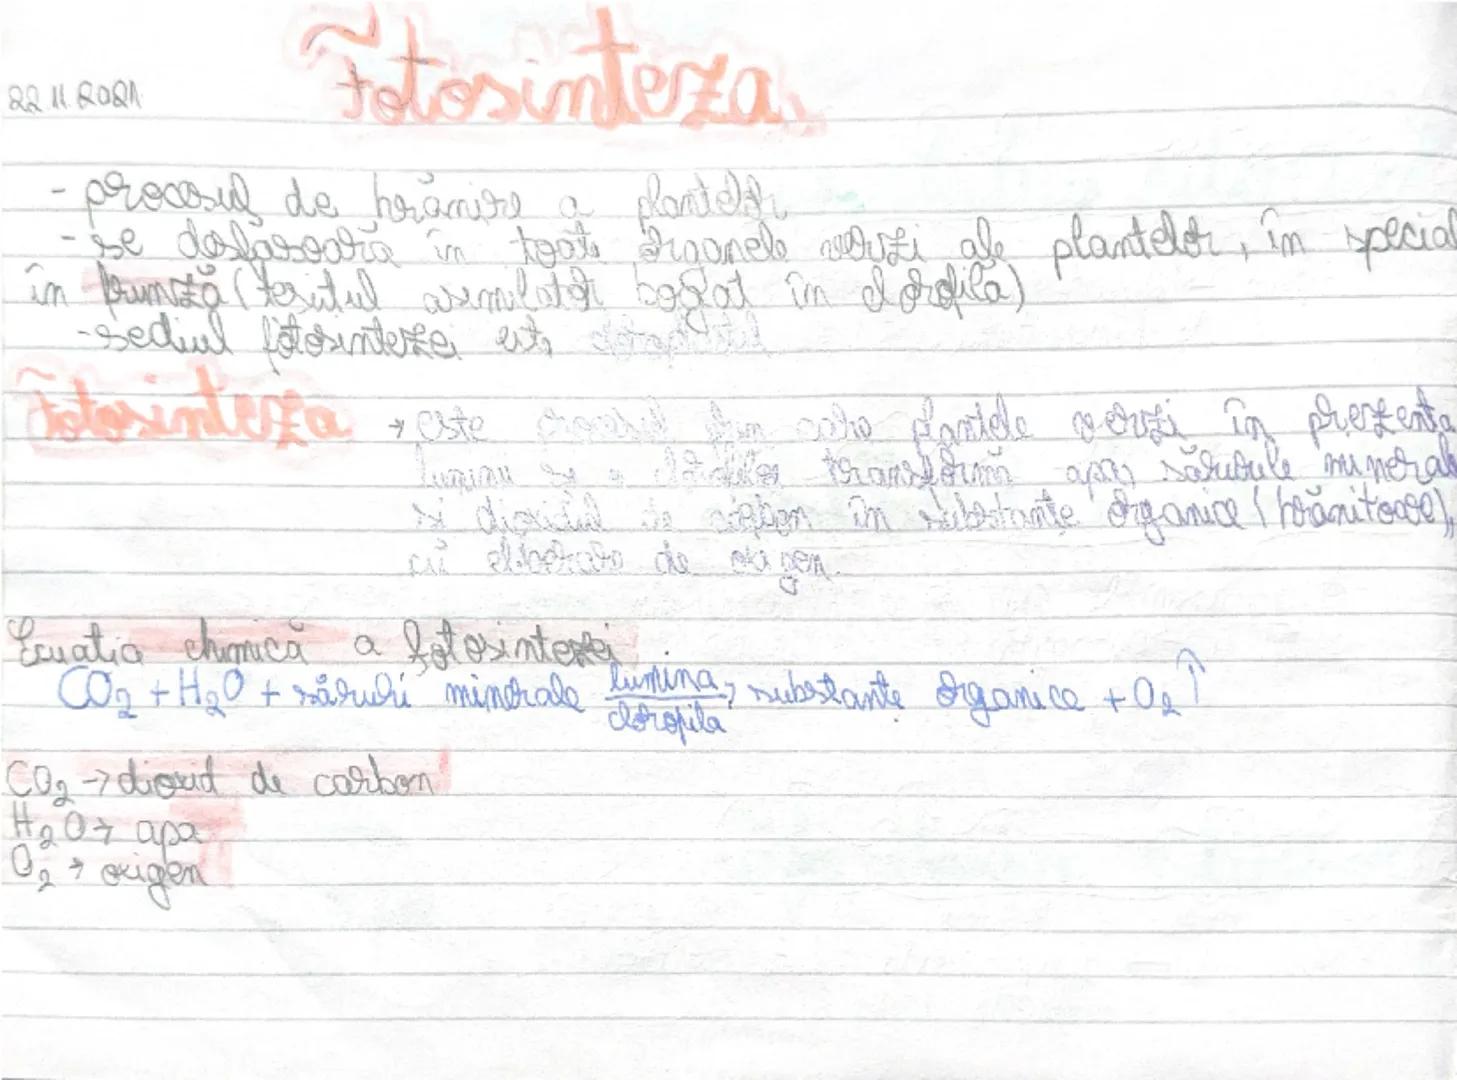 Fotosinteza
22.11.2021
- procesul de hrănire a plantelor
- se desfăsoară în toate organele verzi ale plantelor, în special
în frunză (tesutul asimilator bogat în clorofilă)
- sediul fotosintezei este
Fotosinteza → este procesul prin care plantele verzi în prezenta
luminii si a clorofilei transformă apa, sărurile mineral
si dioxidul de carbon în substante organice (hrănitoare),
cu eliberare de oxigen.
Ecuatia chimică a fotosintezei
CO₂ + H₂O + săruri minerale lumina/clorofila → substante organice + O₂↑
CO₂ → dioxid de carbon
H₂O → apa
O₂ → oxigen